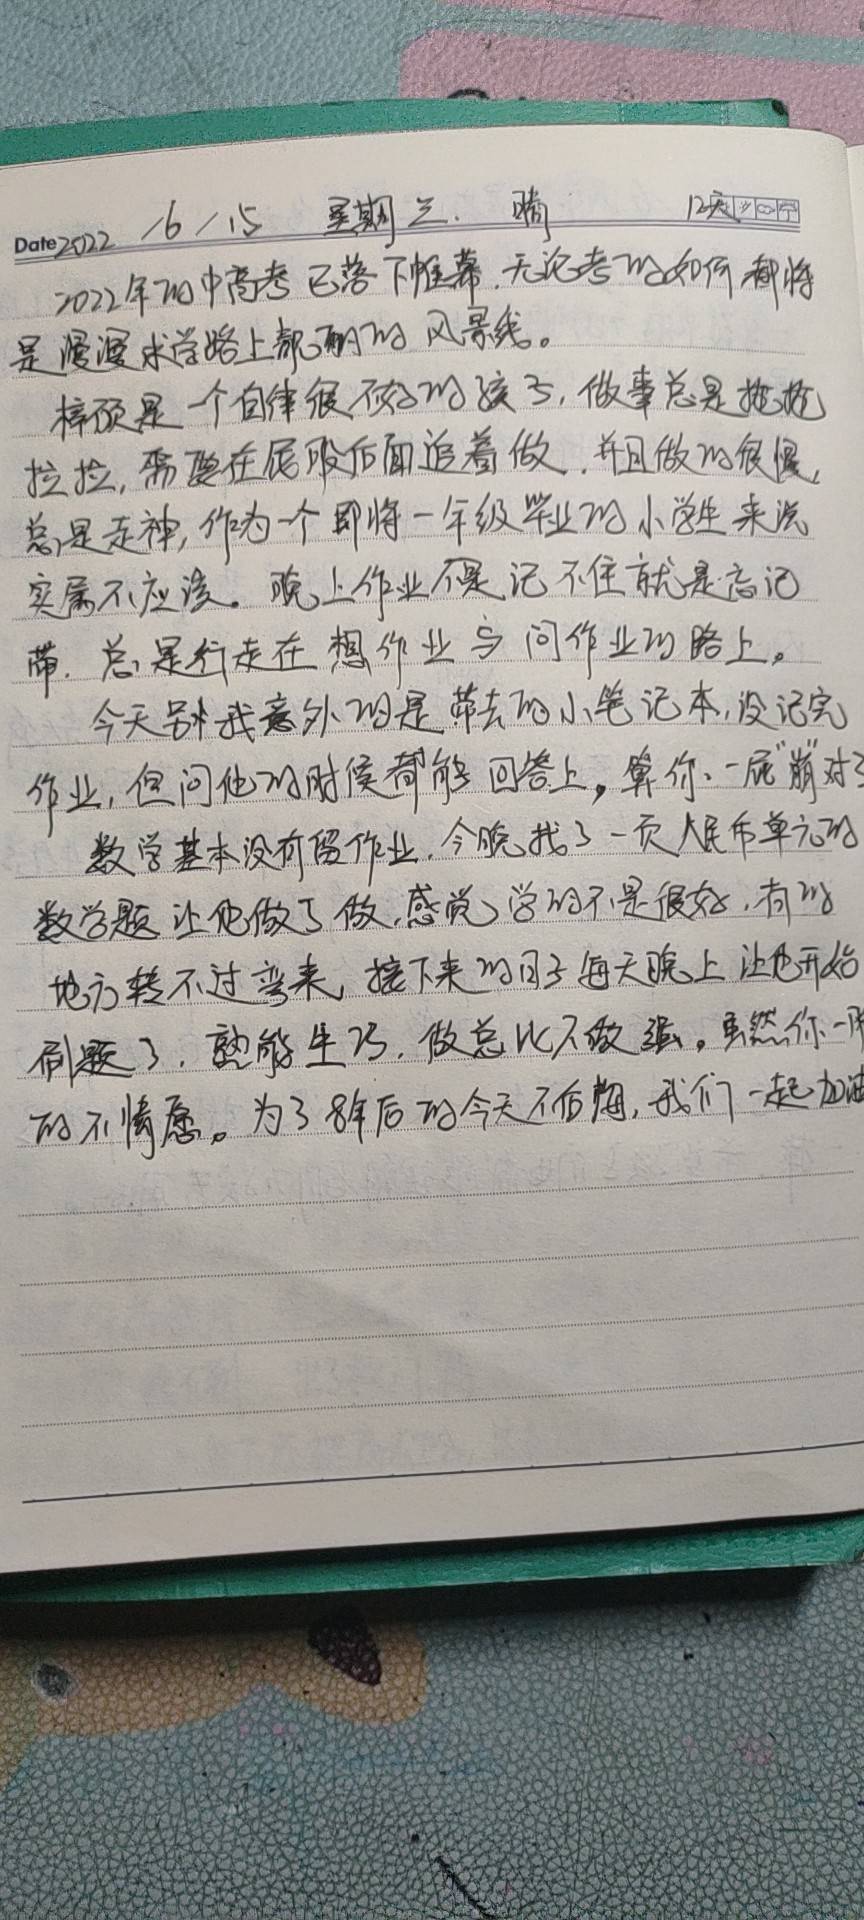 Date 2022 / 6 / 15 星期三. 晴 12天
2022年的中高考已落下帷幕.无论考的如何都将
是漫漫求学路上靓丽的风景线。
梓硕是一个自律很不好的孩子,做事总是拖拖
拉拉,需要在屁股后面追着做.并且做的很慢,
总是走神,作为一个即将一年级毕业的小学生来说
实属不应该。晚上作业不是记不住就是忘记
带.总是行走在想作业与问作业的路上。
今天另我意外的是带去的小笔记本,没记完
作业,但问他的时候都能回答上。算你、一屁"崩"对了
数学基本没有留作业.今晚找了一页人民币单元的
数学题让他做了做.感觉学的不是很好.有的
地方转不过弯来,接下来的日子每天晚上让他开始
刷题了.熟能生巧.做总比不做强。虽然你一脸
的不情愿。为了8年后的今天不后悔,我们一起加油